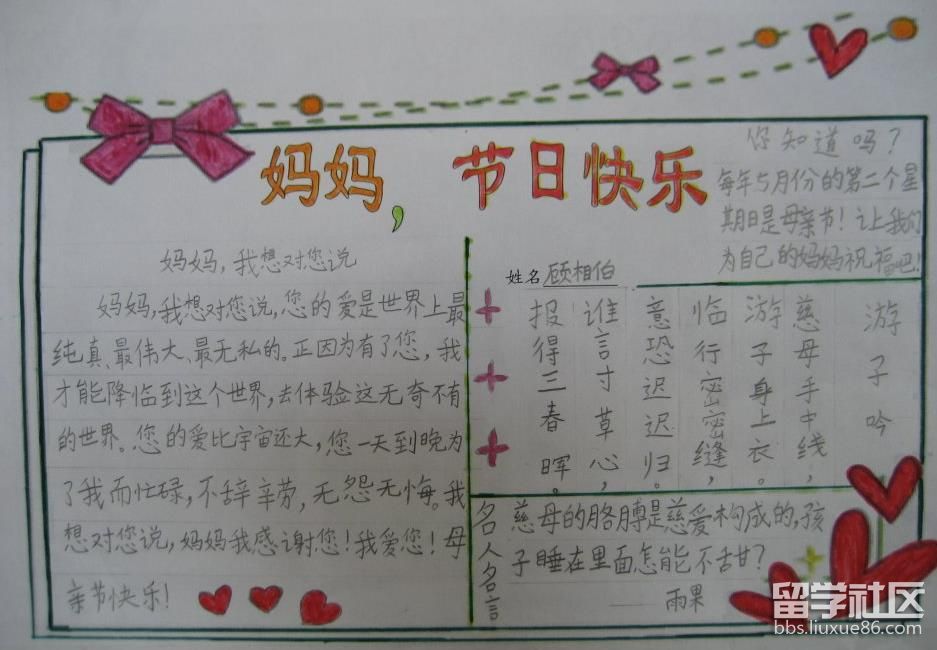 妈妈，节日快乐
您知道吗？
每年5月份的第二个星
期日是母亲节！让我们
为自己的妈妈祝福吧！
妈妈，我想对您说
妈妈，我想对您说，您的爱是世界上最
纯真、最伟大、最无私的。正因为有了您，我
才能降临到这个世界，去体验这无奇不有
的世界。您的爱比宇宙还大，您一天到晚为
了我而忙碌，不辞辛劳，无怨无悔。我
想对您说，妈妈我感谢您！我爱您！母
亲节快乐！
姓名 顾相伯
游子吟
慈母手中线，
游子身上衣。
临行密密缝，
意恐迟迟归。
谁言寸草心，
报得三春晖。
名人名言
慈母的胳膊是慈爱构成的，孩
子睡在里面怎能不舌甘？
——雨果
留学社区
bbs.liuxue86.com